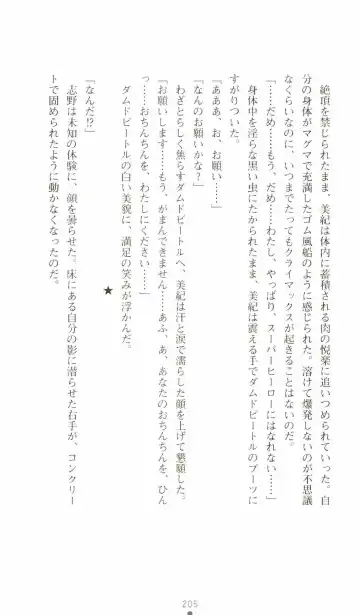 絶頂を禁じられたまま、美紀は体内に蓄積される肉の悦楽に追いつめられていった。自
分の身体がマグマで充満したゴム風船のように感じられた。溶けて爆発しないのが不思議
なくらいなのに、いつまでたってもクライマックスが起きることはないのだ。
「……だめ……もう、だめ……わたし、やっぱり、スーパーヒーローにはなれない……」
身体中を淫らな黒い虫にたかられたまま、美紀は震える手でダムドビートルのブーツに
すがりついた。
「あああ、お、お願い……」
「なんのお願いかな?」
わざとらしく焦らすダムドビートルへ、美紀は汗と涙で濡らした顔を上げて懇願した。
「お願いします……もう、がまんできません……あふ、あ、あなたのおちんちんを、ひん
っ……おちんちんを、わたしにください……」
ダムドビートルの白い美貌に、満足の笑みが浮かんだ。
★
「なんだ!?」
志野は未知の体験に、顔を曇らせた。床にある自分の影に潜らせた右手が、コンクリー
トで固められたように動かなくなったのだ。
205